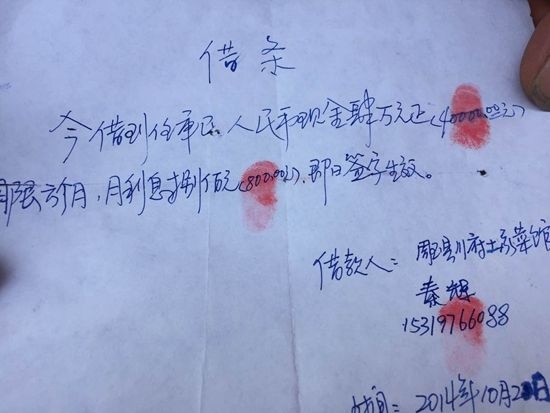 借条
今借到任军民人民币现金肆万元正(40000.00元)
期限六个月，月利息捌佰元(800.00元)，即日签字生效。
借款人：眉县川府土家菜馆
秦辉
15319766088
时间：2014年10月2日